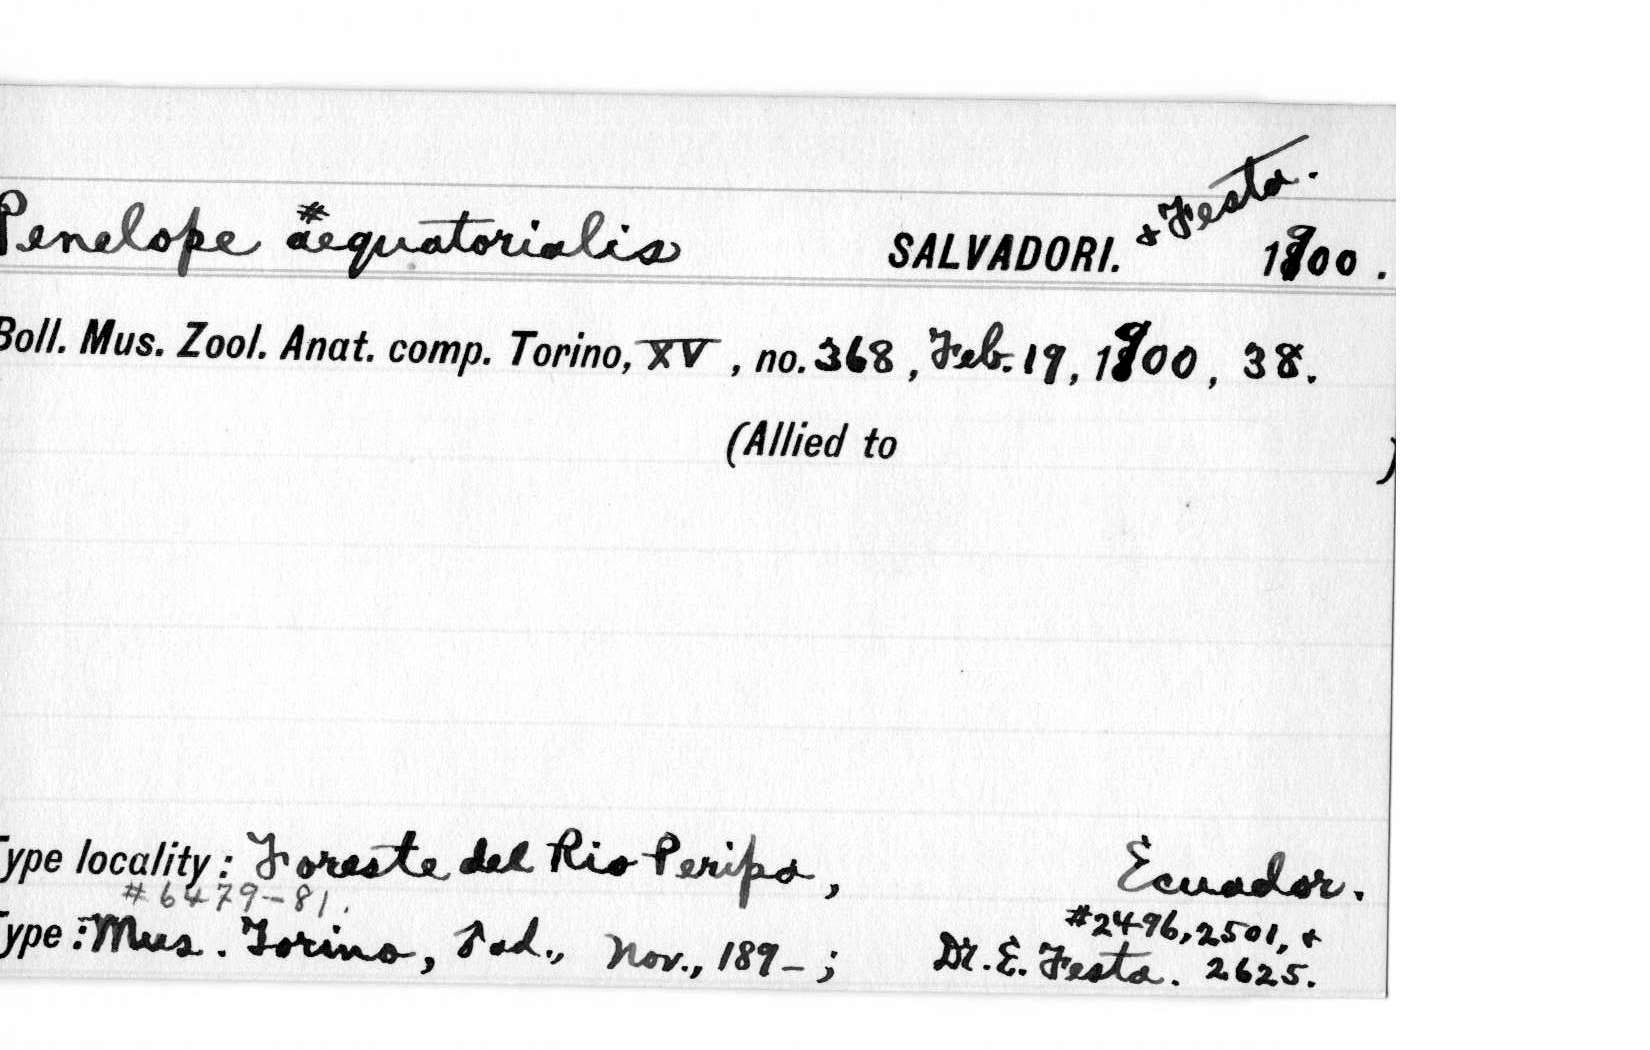 & Festa.
Penelope aequatorialis SALVADORI. 1900.
Boll. Mus. Zool. Anat. comp. Torino, XV, no. 368, Feb. 19, 1900, 38.
(Allied to )
Type locality: Foreste del Rio Peripa, Ecuador.
#6479-81. #2496, 2501, &
Type: Mus. Torino, ad., Nov., 189-; Dr. E. Festa. 2625.